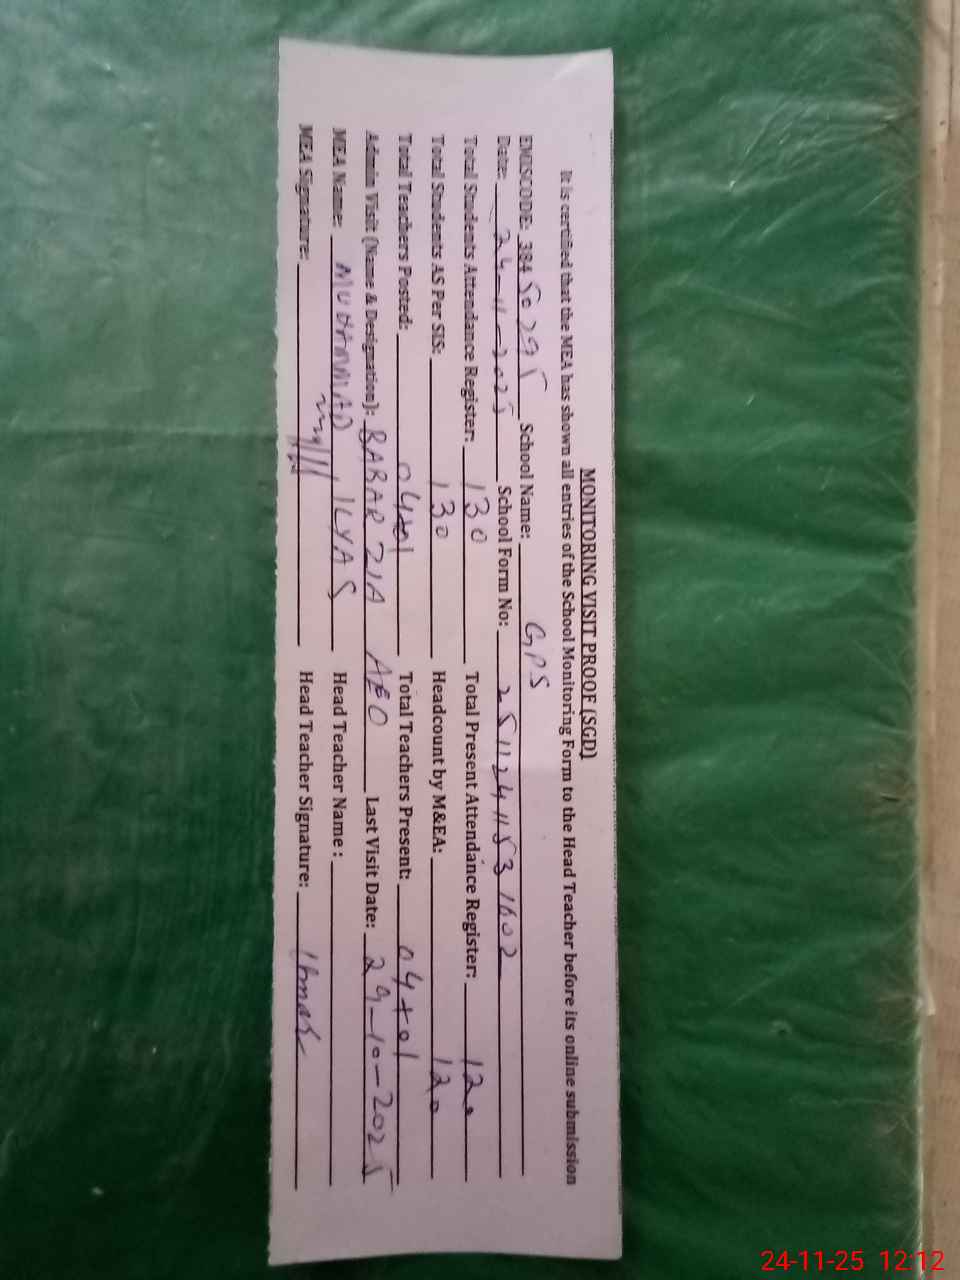 MONITORING VISIT PROOF (SGD)
It is certified that the MEA has shown all entries of the School Monitoring Form to the Head Teacher before its online submission
EMISCODE: 38450295 School Name: GPS
Date: 24-11-2025 School Form No: 2511241153 1602
Total Students Attendance Register: 130 Total Present Attendance Register: 120
Total Students AS Per SIS: 130 Headcount by M&EA: 120
Total Teachers Posted: 04+01 Total Teachers Present: 04+01
Admin Visit (Name & Designation): BABAR ZIA AEO Last Visit Date: 29-10-2025
MEA Name: MUHAMMAD ILYAS Head Teacher Name:
MEA Signature: Head Teacher Signature:
24-11-25 12:12